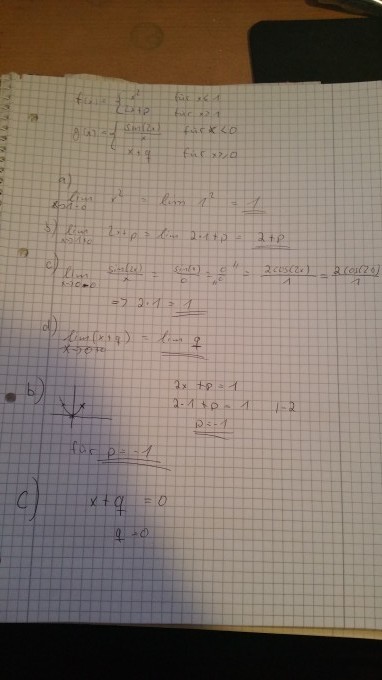 f(x) = { x² für x ≤ 1
2x+p für x > 1
g(x) = { sin(2x)/x für x < 0
x+q für x ≥ 0
a)
lim x→1-0 x² = lim 1² = 1
b) lim x→1+0 2x+p = lim 2·1+p = 2+p
c) lim x→0-0 sin(2x)/x = sin(0)/0 = "0/0" = 2cos(2x)/1 = 2cos(2·0)/1
=> 2·1 = 1
d) lim x→0+0 (x+q) = lim q
b) 2x +p = 1
2·1+p = 1 |-2
p=-1
für p = -1
c) x+q = 0
q = 0